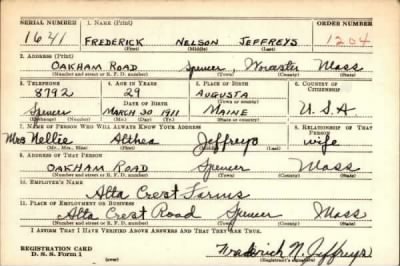 SERIAL NUMBER 1. NAME (Print) ORDER NUMBER
1641 FREDERICK NELSON JEFFREYS 1204
(First) (Middle) (Last)
2. ADDRESS (Print)
OAKHAM ROAD Spencer, Worcester Mass
(Number and street or R. F. D. number) (Town) (County) (State)
3. TELEPHONE 4. AGE IN YEARS 5. PLACE OF BIRTH 6. COUNTRY OF CITIZENSHIP
8792 29 AUGUSTA
DATE OF BIRTH (Town or county)
Spencer MARCH 30 1911 MAINE U.S.A
(Exchange) (Mo.) (Day) (Yr.) (State or country)
7. NAME OF PERSON WHO WILL ALWAYS KNOW YOUR ADDRESS 8. RELATIONSHIP OF THAT PERSON
Mrs Nellie Althea Jeffreys wife
(Mr., Mrs., Miss) (First) (Middle) (Last)
9. ADDRESS OF THAT PERSON
OAKHAM ROAD Spencer Mass
(Number and street or R. F. D. number) (Town) (County) (State)
10. EMPLOYER'S NAME
Alta Crest Farms
11. PLACE OF EMPLOYMENT OR BUSINESS
Alta Crest Road Spencer Mass
(Number and street or R. F. D. number) (Town) (County) (State)
I AFFIRM THAT I HAVE VERIFIED ABOVE ANSWERS AND THAT THEY ARE TRUE.
REGISTRATION CARD
D. S. S. Form 1 Frederick N. Jeffreys
(Registrant's signature)